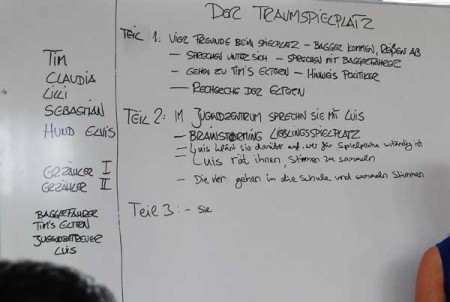 DER TRAUMSPIELPLATZ
TEIL 1: VIER FREUNDE BEIM SPIELPLATZ - BAGGER KOMMEN, REIßEN AB
- SPRECHEN UNTER SICH - SPRECHEN MIT BAGGERFAHRER
- GEHEN ZU TIM'S ELTERN - HINWEIS POLITIKER
- RECHERCHE DER ELTERN
TEIL 2: IM JUGENDZENTRUM SPRECHEN SIE MIT LUIS
- BRAINSTORMING LIEBLINGSSPIELPLATZ
- Luis klärt sie darüber auf, wer für Spielplätze zuständig ist
- Luis rät ihnen, Stimmen zu sammeln
- Die vier gehen in die Schule und sammeln Stimmen
Teil 3: - Sie
TIM
CLAUDIA
LILLI
SEBASTIAN
HUND ELVIS
ERZÄHLER I
ERZÄHLER II
BAGGERFAHRER
TIM'S ELTERN
JUGENDBETREUER
LUIS